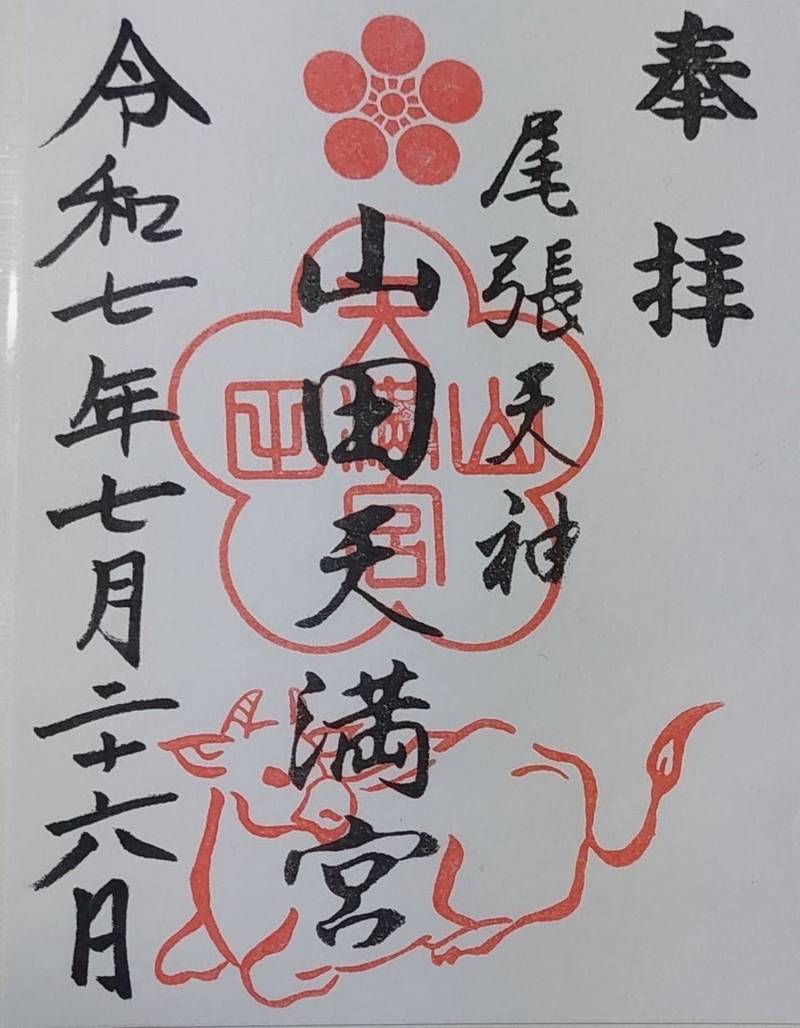 奉拝
尾張天神
山田天満宮
令和七年七月二十六日
山
天満宮